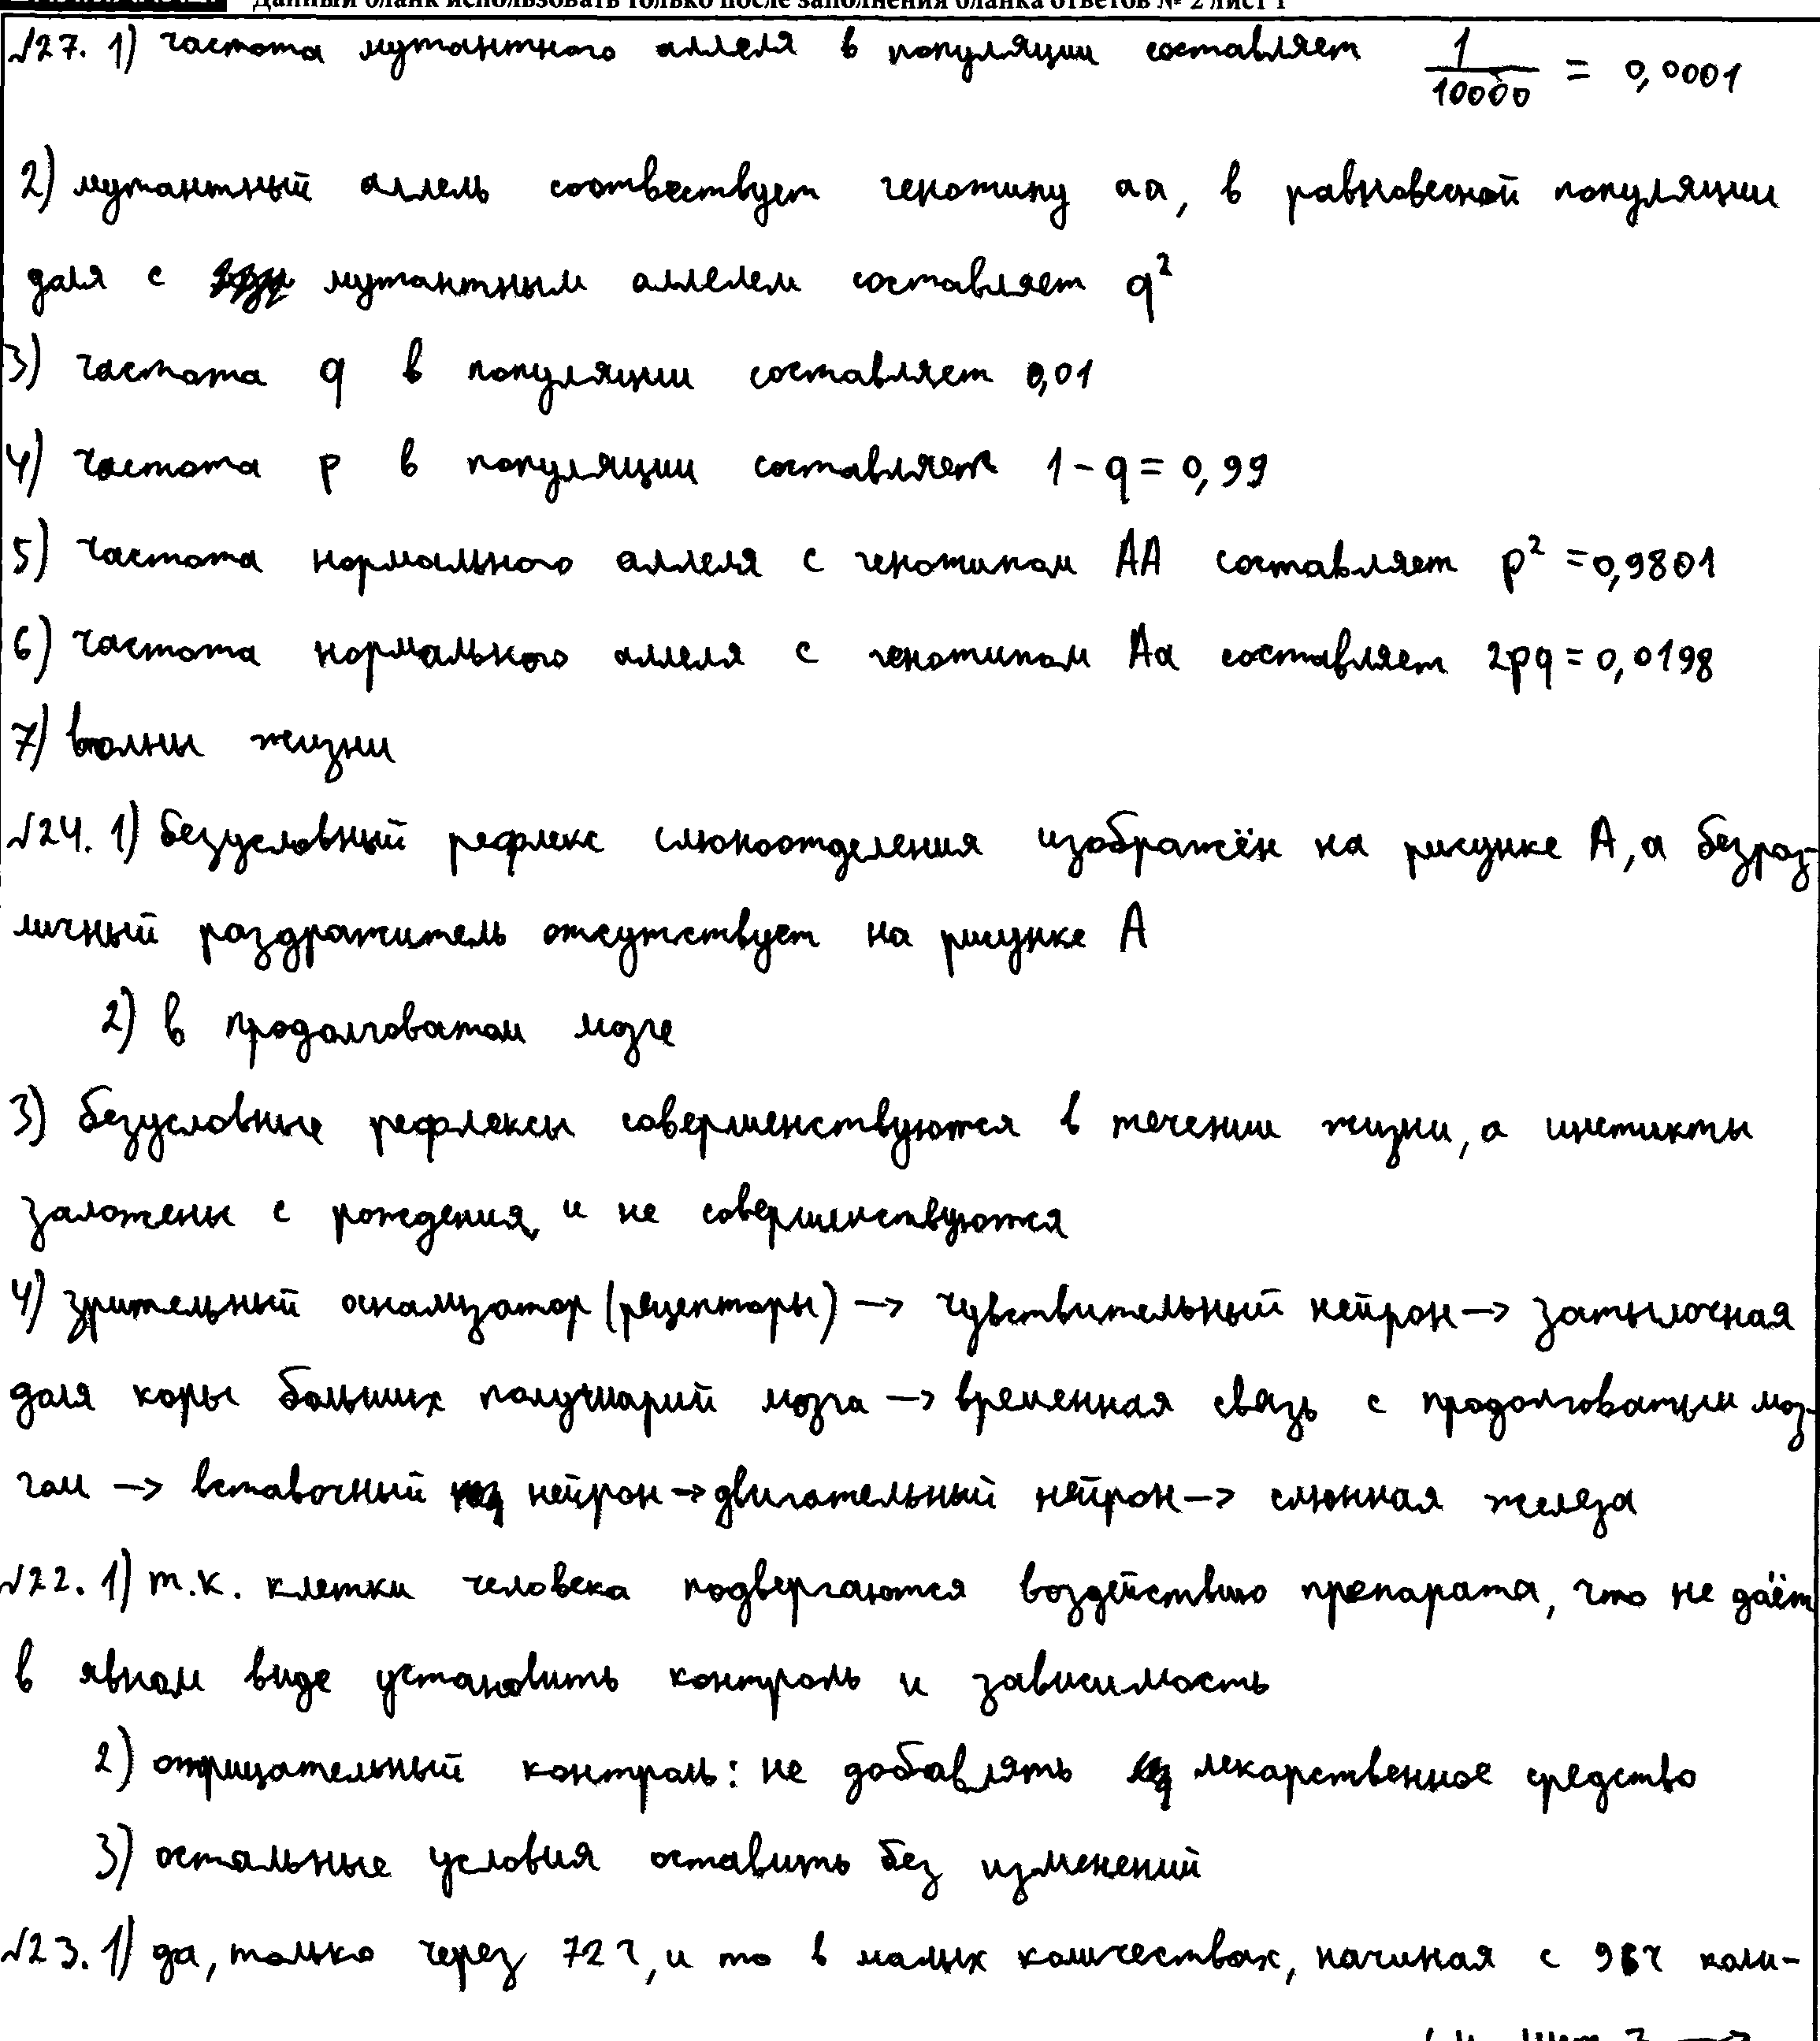 Данный бланк использовать только после заполнения бланка ответов № 2 лист 1
№27. 1) частота мутантного аллеля в популяции составляет 1/10000 = 0,0001
2) мутантный аллель соотвествует генотипу аа, в равновесной популяции
доля с мутантным аллелем составляет q²
3) частота q в популяции составляет 0,01
4) частота p в популяции составляет 1-q=0,99
5) частота нормального аллеля с генотипом АА составляет p²=0,9801
6) частота нормального аллеля с генотипом Аа составляет 2pq=0,0198
7) волны жизни
№24. 1) безусловный рефлекс слюноотделения изображён на рисунке А, а безраз-
личный раздражитель отсутствует на рисунке А
2) в продолговатом мозге
3) безусловные рефлексы совершенствуются в течении жизни, а инстикты
заложены с рождения и не совершенствуются
4) зрительный анализатор (рецепторы) → чувствительный нейрон → затылочная
доля коры больших полушарий мозга → временная связь с продолговатым моз-
гом → вставочный нейрон → двигательный нейрон → слюнная железа
№22. 1) т.к. клетки человека подвергаются воздействию препарата, что не даёт
в явном виде установить контроль и зависимость
2) отрицательный контроль: не добавлять лекарственное средство
3) остальные условия оставить без изменений
№23. 1) да, только через 72 ч, и то в малых количествах, начиная с 96ч коли-